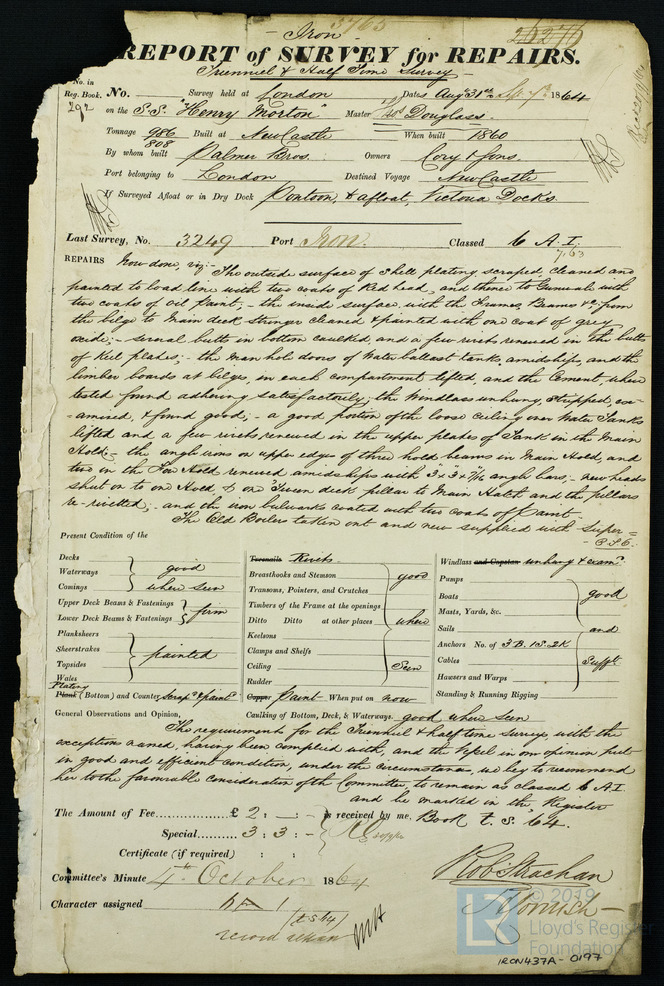 Iron 3765
REPORT of SURVEY for REPAIRS.
Triennial & Half Time Survey
No. in Reg. Book. No. Survey held at London Date, Aug 31st Sep 1864
292 on the S.S. "Henry Morton" Master Douglass.
Tonnage 986 Built at NewCastle When built 1860
808
By whom built Palmer Bros. Owners Cory & Sons.
Port belonging to London Destined Voyage NewCastle
If Surveyed Afloat or in Dry Dock Pontoon, & afloat, Victoria Docks.
Last Survey, No. 3249 Port Iron. Classed 6 A.I.
7,63
REPAIRS Now done, viz:- The outside surface of Shell plating scraped, cleaned and
painted to load line with two coats of Red lead, and thence to Gunwale with
two coats of oil paint; - the inside surface, with the Frames, Beams &c. from
the bilge to Main deck Stringer cleaned & painted with one coat of grey
oxide; - several butts in bottom caulked, and a few rivets renewed in the butts
of Keel plates; - the man hole doors of Water ballast tanks, amidships, and the
limber boards at bilges, in each compartment lifted, and the Cement, where
tested found adhering satisfactorily; the Windlass unhung, stripped, ex-
-amined, & found good; - a good portion of the loose ceiling over Water Tanks
lifted and a few rivets renewed in the upper plates of Tank in the Main
Hold; - the angle irons on upper edges of three hold beams in Main Hold, and
two in the Fore Hold renewed amidships with 3 x 3 x 7/16 angle bars, - new heads
shut on to one Hold, & one 'Tween deck pillar to Main Hatch and the pillars
re-rivetted; - and the iron bulwarks coated with two coats of Paint.
The Old Boilers taken out and new supplied with Super=
Present Condition of the
Decks good
Waterways
Comings where seen
Upper Deck Beams & Fastenings firm
Lower Deck Beams & Fastenings
Planksheers
Sheerstrakes painted
Topsides
Wales
Plating
Plank (Bottom) and Counter scraped & paint
Treenails Rivets
Breasthooks and Stemson good
Transoms, Pointers, and Crutches
Timbers of the Frame at the openings
Ditto Ditto at other places where
Keelsons
Clamps and Shelfs
Ceiling seen
Rudder
Copper Paint When put on now
Caulking of Bottom, Deck, & Waterways good where seen
Windlass and Capstan unhung & exam
Pumps
Boats good
Masts, Yards, &c.
Sails and
Anchors No. of 3B. 1S. 2K
Cables Sufft
Hawsers and Warps
Standing & Running Rigging
General Observations and Opinion,
The requirements for the Triennial & half time Surveys with the
exceptions named, having been complied with, and the Vessel in our opinion put
in good and efficient condition, under the circumstances, we beg to recommend
her to the favourable consideration of the Committee, to remain as classed 6 A.I.
and be marked in the Register
Book t. S. '64.
The Amount of Fee £ 2 : - : - is received by me,
Special 3 : 3 : -
Certificate (if required) : :
Committee's Minute 4th October 1864
Character assigned 6A1
(t S 64)
Robt Strachan
© 2019
Lloyd's Register
Foundation
IRON437A-0197